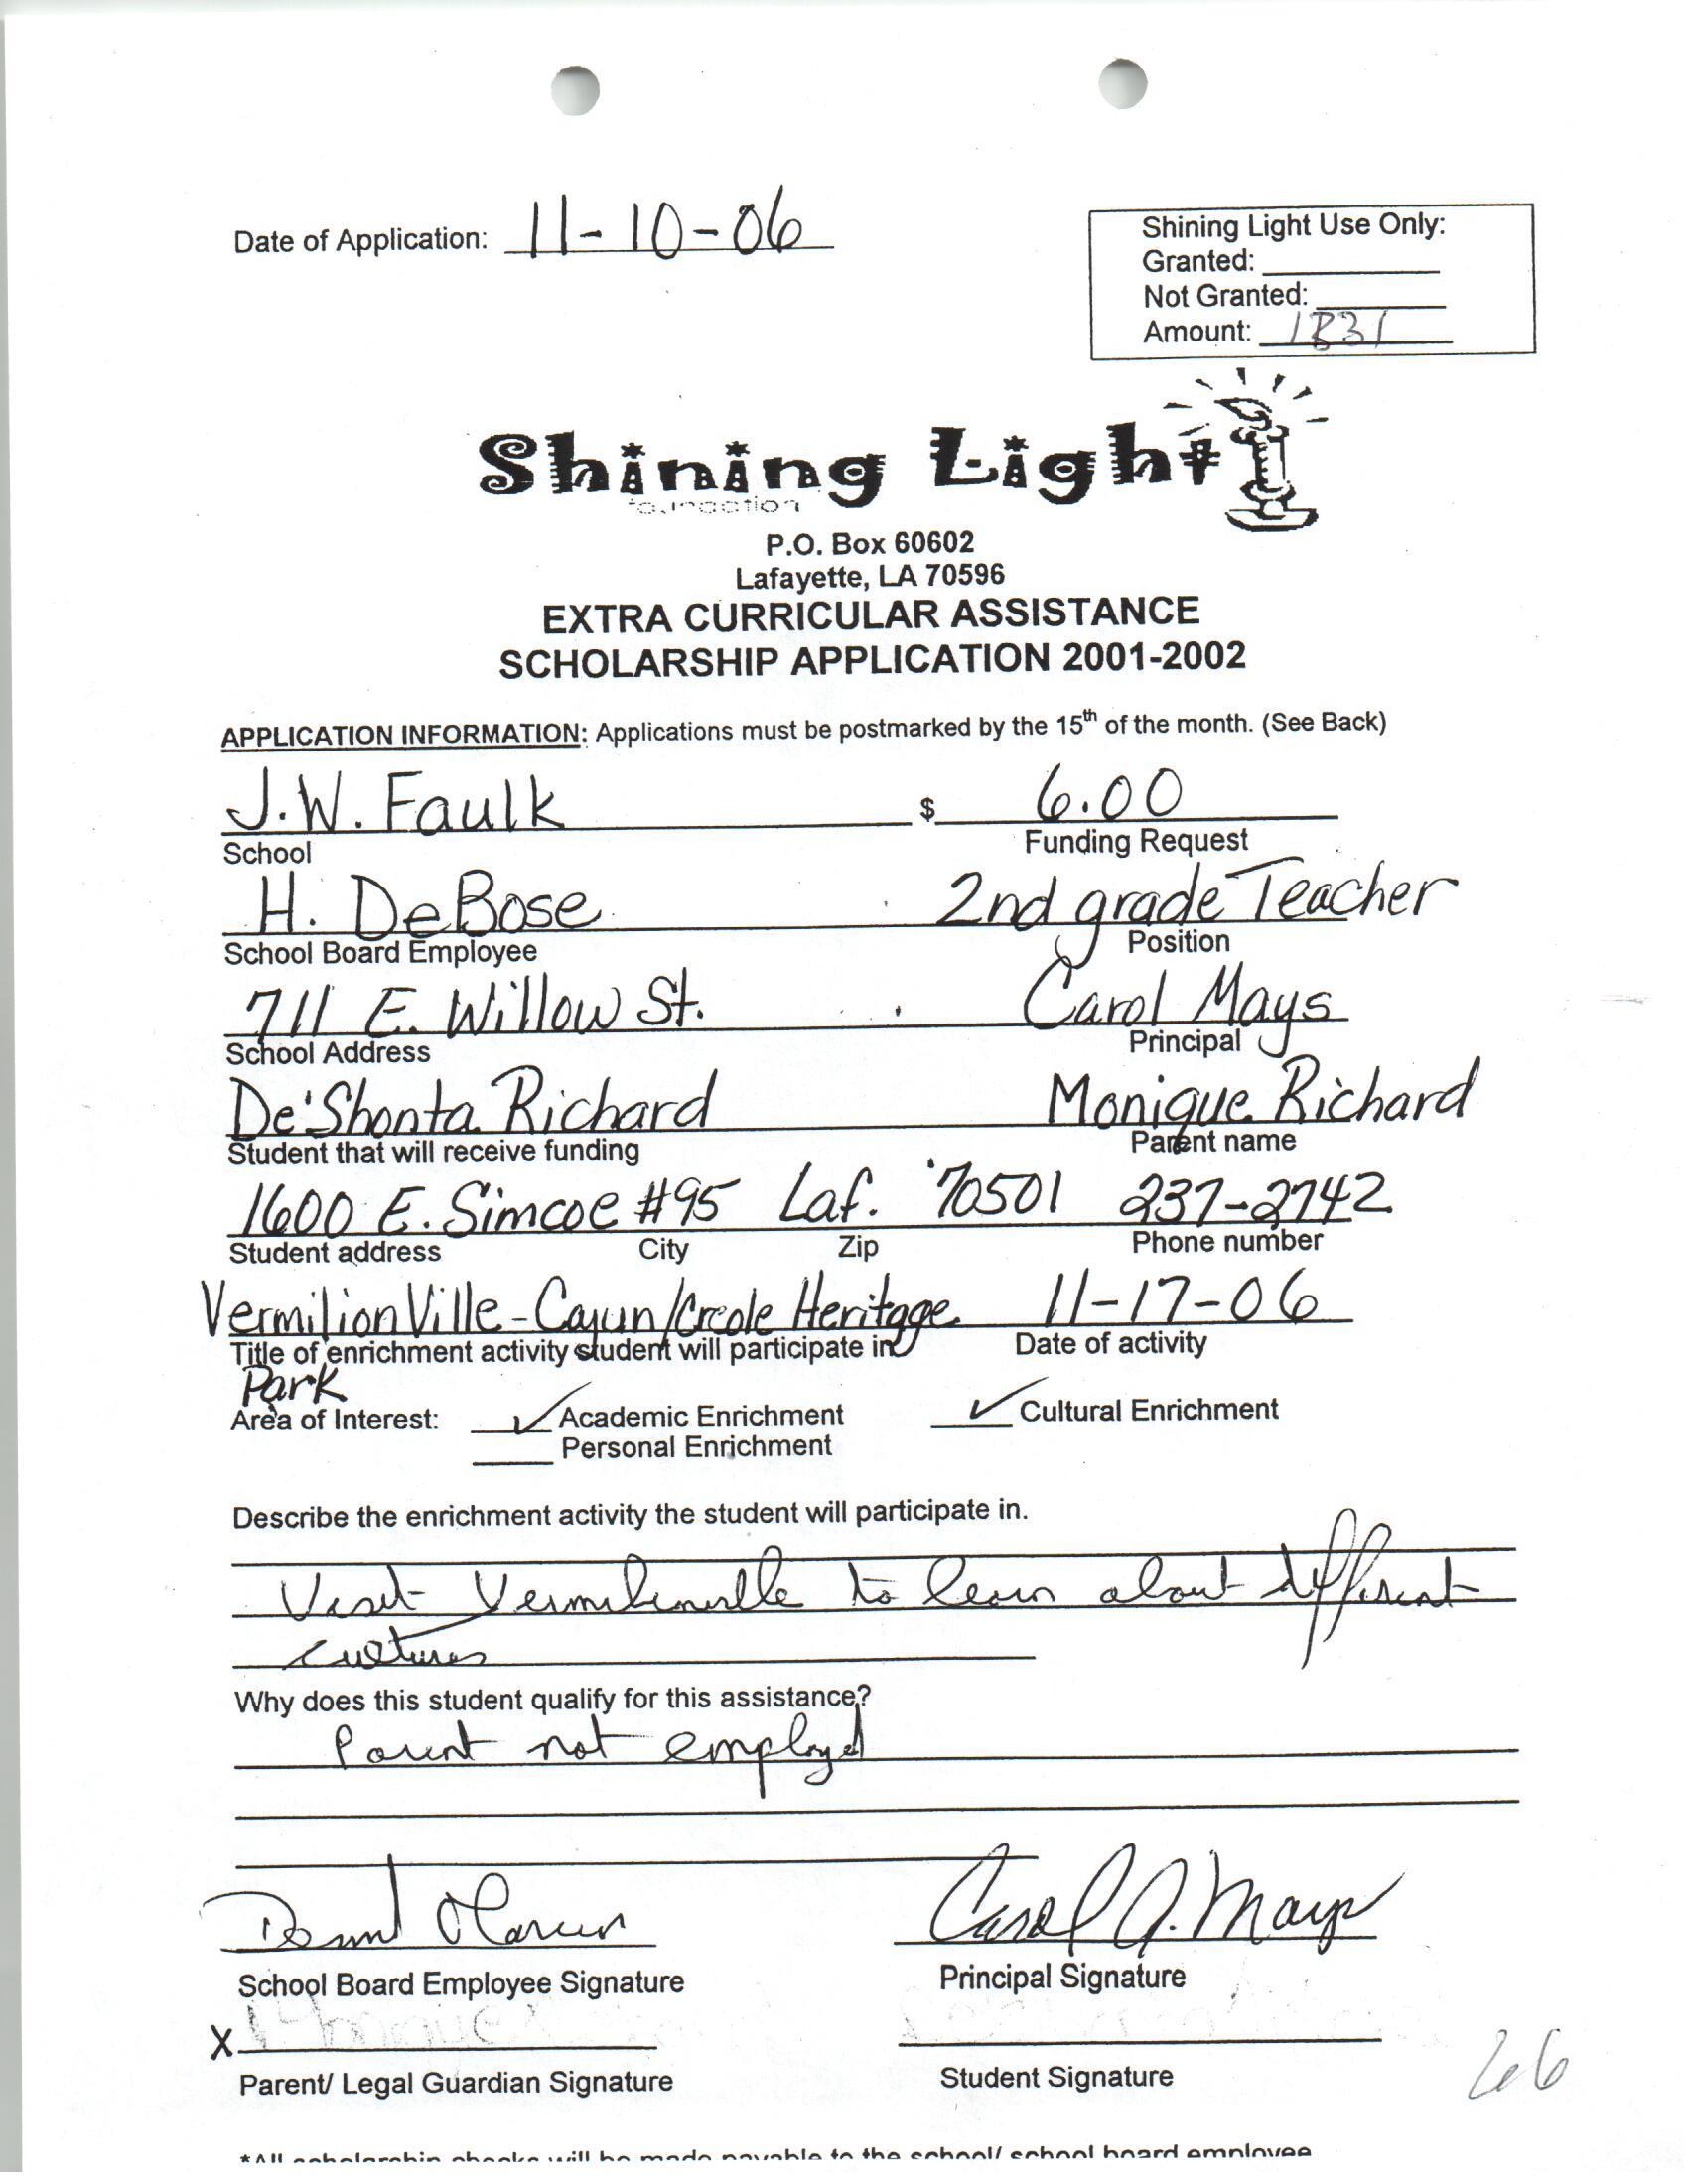 Date of Application: 11-10-06
Shining Light Use Only:
Granted:
Not Granted:
Amount: 1831
Shining Light
foundation
P.O. Box 60602
Lafayette, LA 70596
EXTRA CURRICULAR ASSISTANCE
SCHOLARSHIP APPLICATION 2001-2002
APPLICATION INFORMATION: Applications must be postmarked by the 15th of the month. (See Back)
J.W. Faulk $ 6.00
School Funding Request
H. DeBose 2nd grade Teacher
School Board Employee Position
711 E. Willow St. Carol Mays
School Address Principal
De'Shonta Richard Monique Richard
Student that will receive funding Parent name
1600 E. Simcoe #95 Laf. 70501 237-2742
Student address City Zip Phone number
VermilionVille-Cajun/Creole Heritage 11-17-06
Title of enrichment activity student will participate in Date of activity
Park
Area of Interest: ✓ Academic Enrichment ✓ Cultural Enrichment
Personal Enrichment
Describe the enrichment activity the student will participate in.
Visit Vermilionville to learn about different
cultures
Why does this student qualify for this assistance?
Parent not employed
Carol A. Mays
School Board Employee Signature Principal Signature
X
Parent/ Legal Guardian Signature Student Signature
66
*All scholarship checks will be made payable to the school/ school board employee